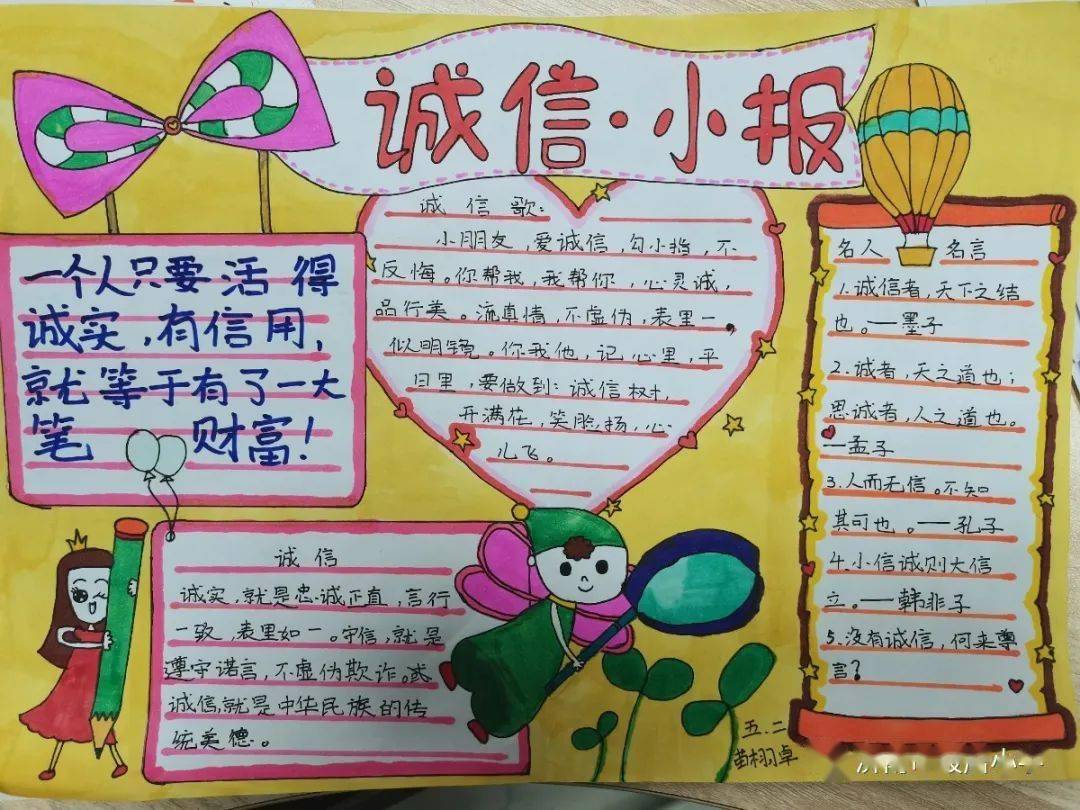 诚信·小报
一个人只要活得
诚实,有信用,
就等于有了一大
笔 财富!
诚信歌:
小朋友,爱诚信,勾小指,不
反悔。你帮我,我帮你,心灵诚,
品行美。流真情,不虚伪,表里一,
似明镜。你我他,记心里,平
日里,要做到:诚信树,
开满花,笑脸扬,心
儿飞。
名人 名言
1.诚信者,天下之结
也。——墨子
2.诚者,天之道也;
思诚者,人之道也。
——孟子
3.人而无信。不知
其可也。——孔子
4.小信诚则大信
立。——韩非子
5.没有诚信,何来尊
言?
诚信
诚实,就是忠诚正直,言行
一致,表里如一。守信,就是
遵守诺言,不虚伪欺诈。
诚信,就是中华民族的传
统美德。
五.二